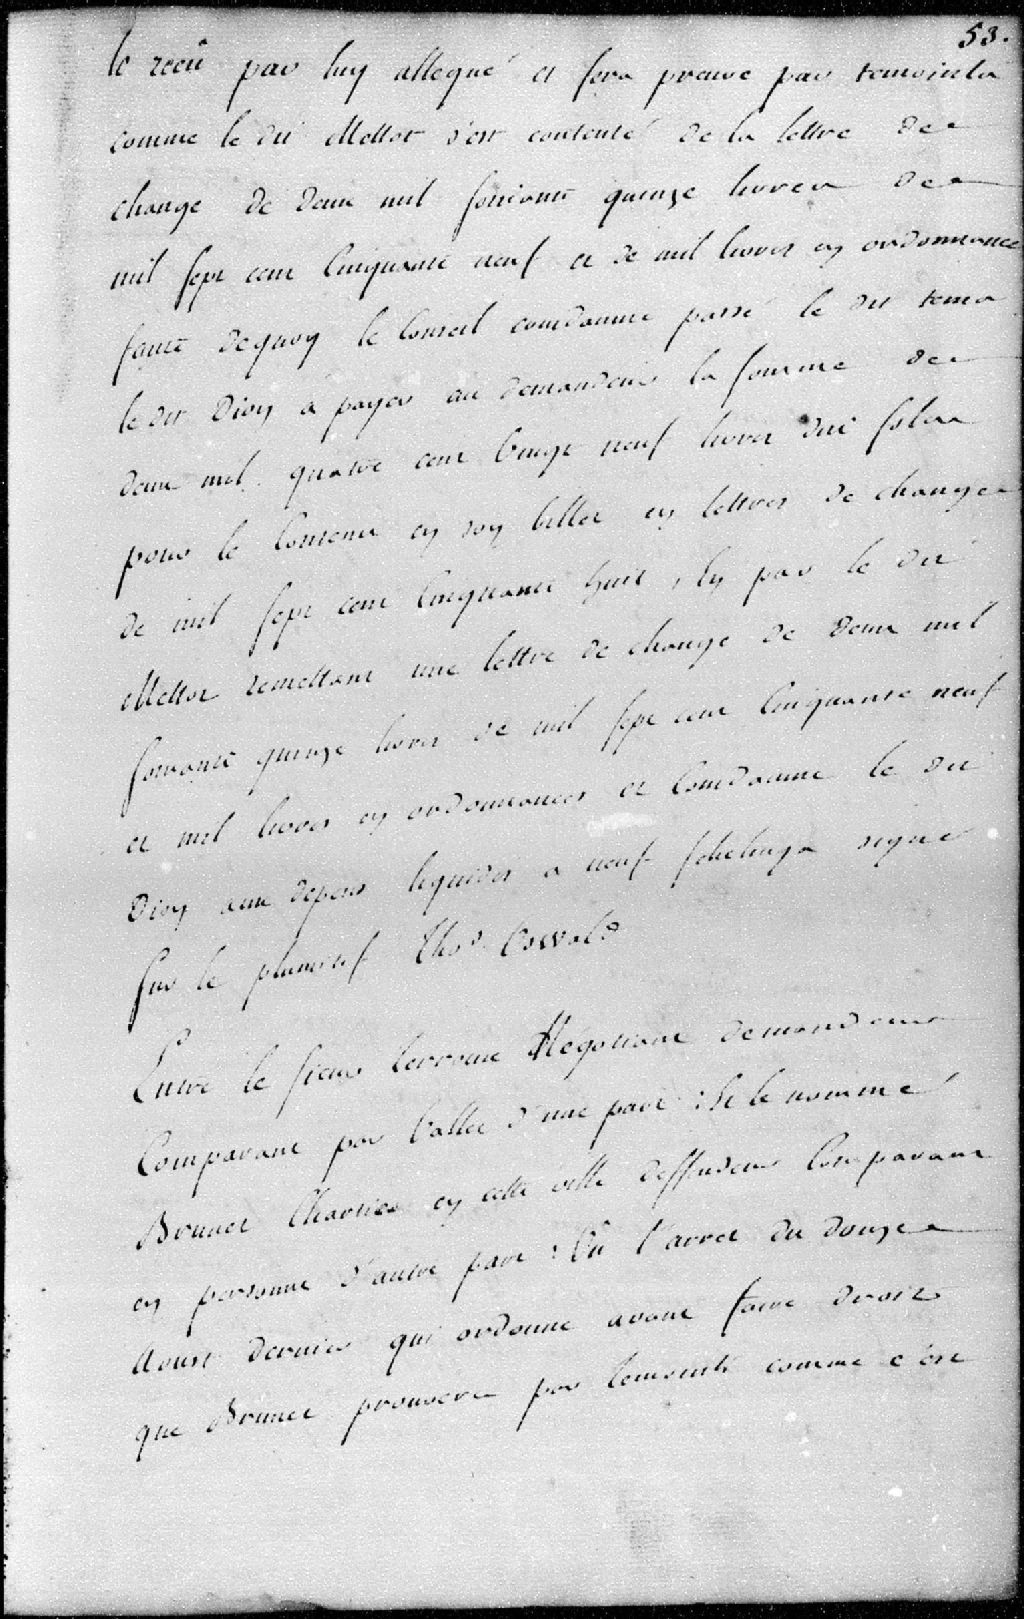 53.
le recû par luy allegué et fera preuve par temoints
comme le dit Mettot s'est contenté de la lettre de
change de deux mil soixante quinze livres de
mil sept cent Cinquante neuf et de mil livres en ordonnance
faute dequoy le Conseil condamne passé le dit tems
le dit Dion a payer au demandeur la somme de
deux mil quatre cent vingt neuf livres dix sols
pour le Contenu en son billet en lettres de change
de mil sept cent Cinquante huit, En par le dit
Mettot remettant une lettre de change de deux mil
soixante quinze livres de mil sept cent Cinquante neuf
et mil livres en ordonnances et Condamne le dit
Dion aux depens liquidés a neuf schelings signé
Sur le plumitif Tho.s
Entre le sieur Négotiant demandeur
Comparant par d'une part; Et le nommé
Brunet Chartier en cette ville deffendeur Comparant
en personne d'autre part; Vû l'arret du douze
Aoust dernier qui ordonne avant faire droit
que Brunet prouvera par temoints comme c'est